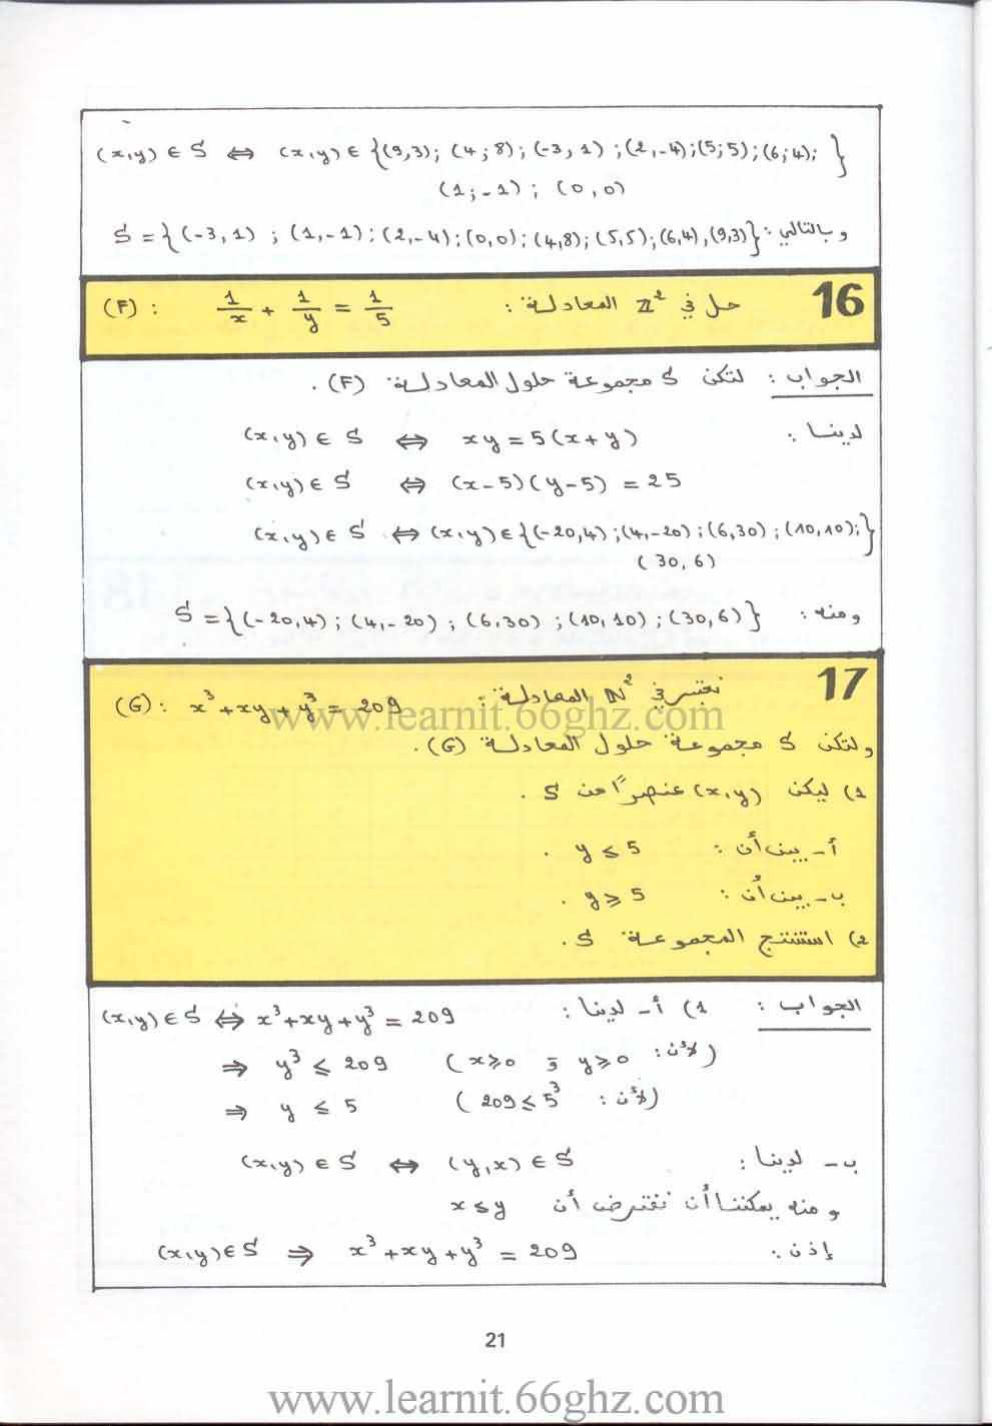 (x,y) ∈ S ⇔ (x,y) ∈ {(9,3); (4;8); (-3,1); (2,-4); (5;5); (6;4);
(1;-1); (0,0)}
وبالتالي: S = {(-3,1); (1,-1); (2,-4); (0,0); (4,8); (5,5); (6,4), (9,3)}
16 حل في ℤ² المعادلة: (F): 1/x + 1/y = 1/5
الجواب: لتكن S مجموعة حلول المعادلة (F).
لدينا: (x,y) ∈ S ⇔ xy = 5(x+y)
(x,y) ∈ S ⇔ (x-5)(y-5) = 25
(x,y) ∈ S ⇔ (x,y) ∈ {(-20,4); (4,-20); (6,30); (10,10);
(30,6)}
ومنه: S = {(-20,4); (4,-20); (6,30); (10,10); (30,6)}
17 نعتبر في ℕ² المعادلة: (G): x³+xy+y³ = 209
www.learnit.66ghz.com
ولتكن S مجموعة حلول المعادلة (G).
1) ليكن (x,y) عنصرًا من S.
أ- بين أن: y ≤ 5.
ب- بين أن: y ≥ 5.
2) استنتج المجموعة S.
الجواب: 1) أ- لدينا: (x,y) ∈ S ⇔ x³+xy+y³ = 209
⇒ y³ ≤ 209 (لأن: y ≥ 0 و x ≥ 0)
⇒ y ≤ 5 (لأن: 209 ≤ 5³)
ب- لدينا: (x,y) ∈ S ⇔ (y,x) ∈ S
ومنه يمكننا أن نفترض أن x ≤ y
إذن: (x,y) ∈ S ⇒ x³+xy+y³ = 209
21
www.learnit.66ghz.com